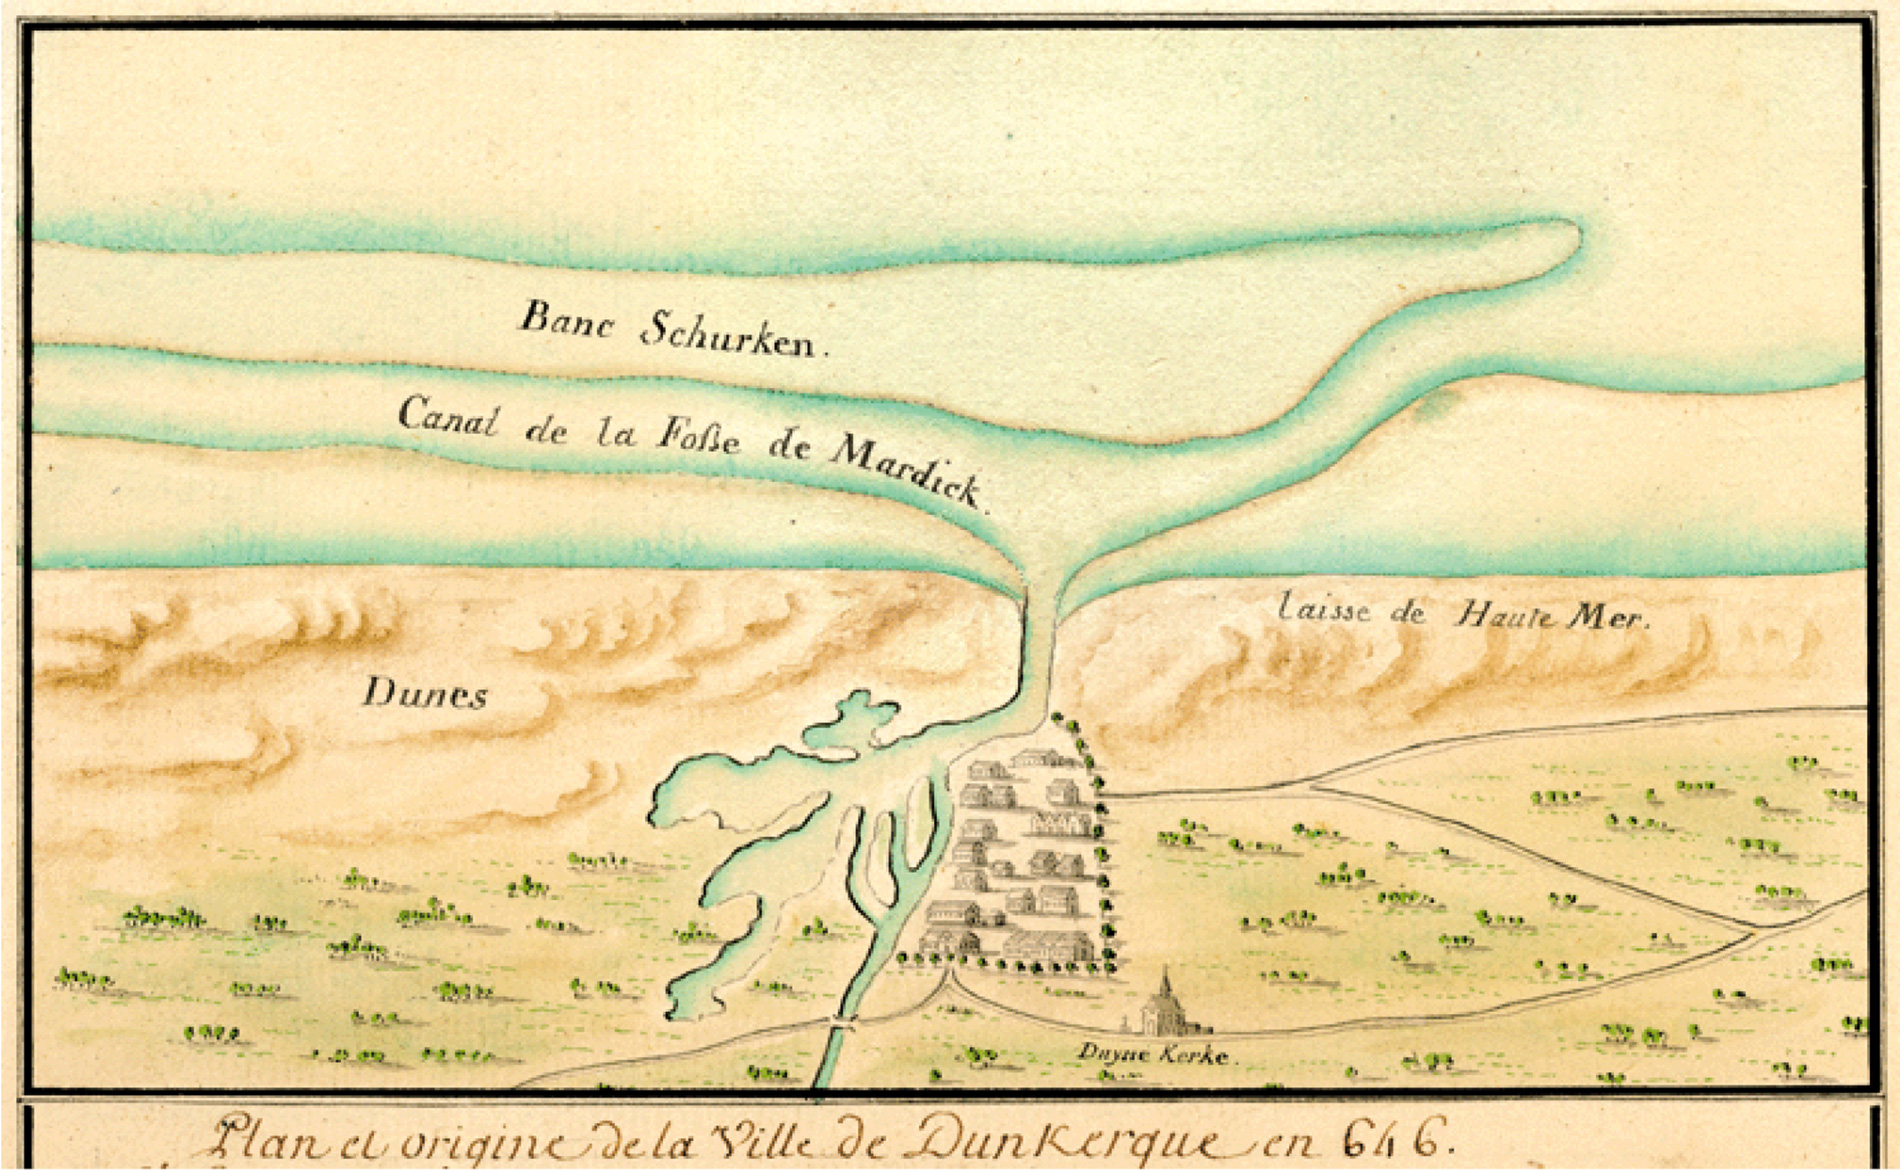 Banc Schurken.
Canal de la Foße de Mardick.
Laisse de Haute Mer.
Dunes
Duyne Kerke.
Plan et origine de la Ville de Dunkerque en 646.